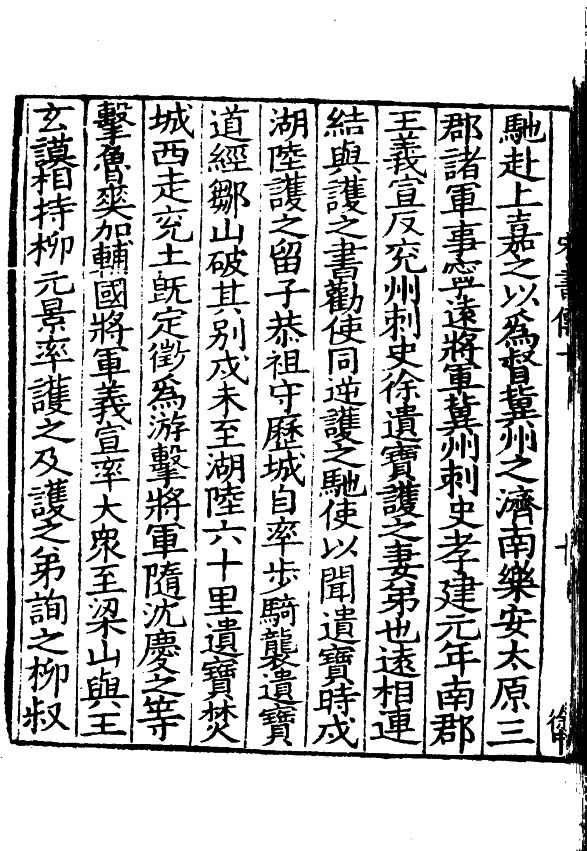 馳赴上嘉之以爲督冀州之濟南樂安太原三
郡諸軍事寧遠將軍冀州刺史孝建元年南郡
王義宣反兖州刺史徐遺寶護之妻弟也遠相連
結與護之書勸使同逆護之馳使以聞遺寶時戍
湖陸護之留子恭祖守歷城自率步騎襲遺寶
道經鄒山破其别戍未至湖陸六十里遺寶焚
城西走兖土既定徵爲游擊將軍隨沈慶之等
擊魯爽加輔國將軍義宣率大衆至梁山與王
玄謨相持柳元景率護之及護之弟詢之柳叔